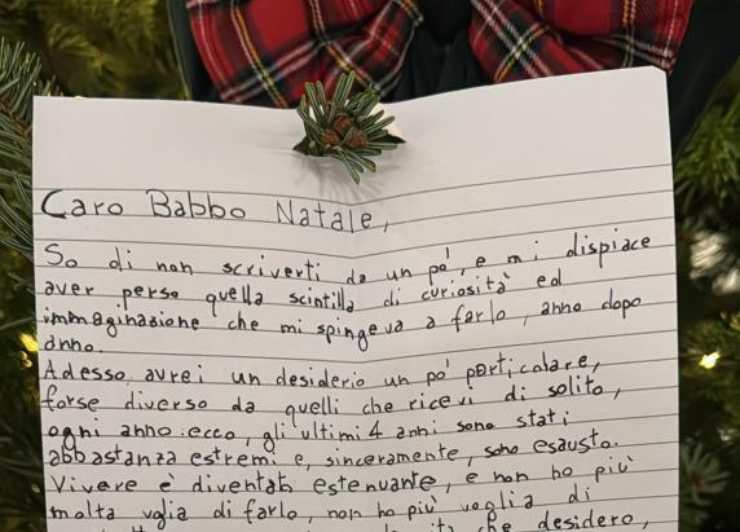 Caro Babbo Natale,
So di non scriverti da un po', e mi dispiace
aver perso quella scintilla di curiosità ed
immaginazione che mi spingeva a farlo, anno dopo
anno.
Adesso avrei un desiderio un po' particolare,
forse diverso da quelli che ricevi di solito,
ogni anno: ecco, gli ultimi 4 anni sono stati
abbastanza estremi e, sinceramente, sono esausto.
Vivere è diventato estenuante, e non ho più
molta voglia di farlo, non ho più voglia di
che desidero,